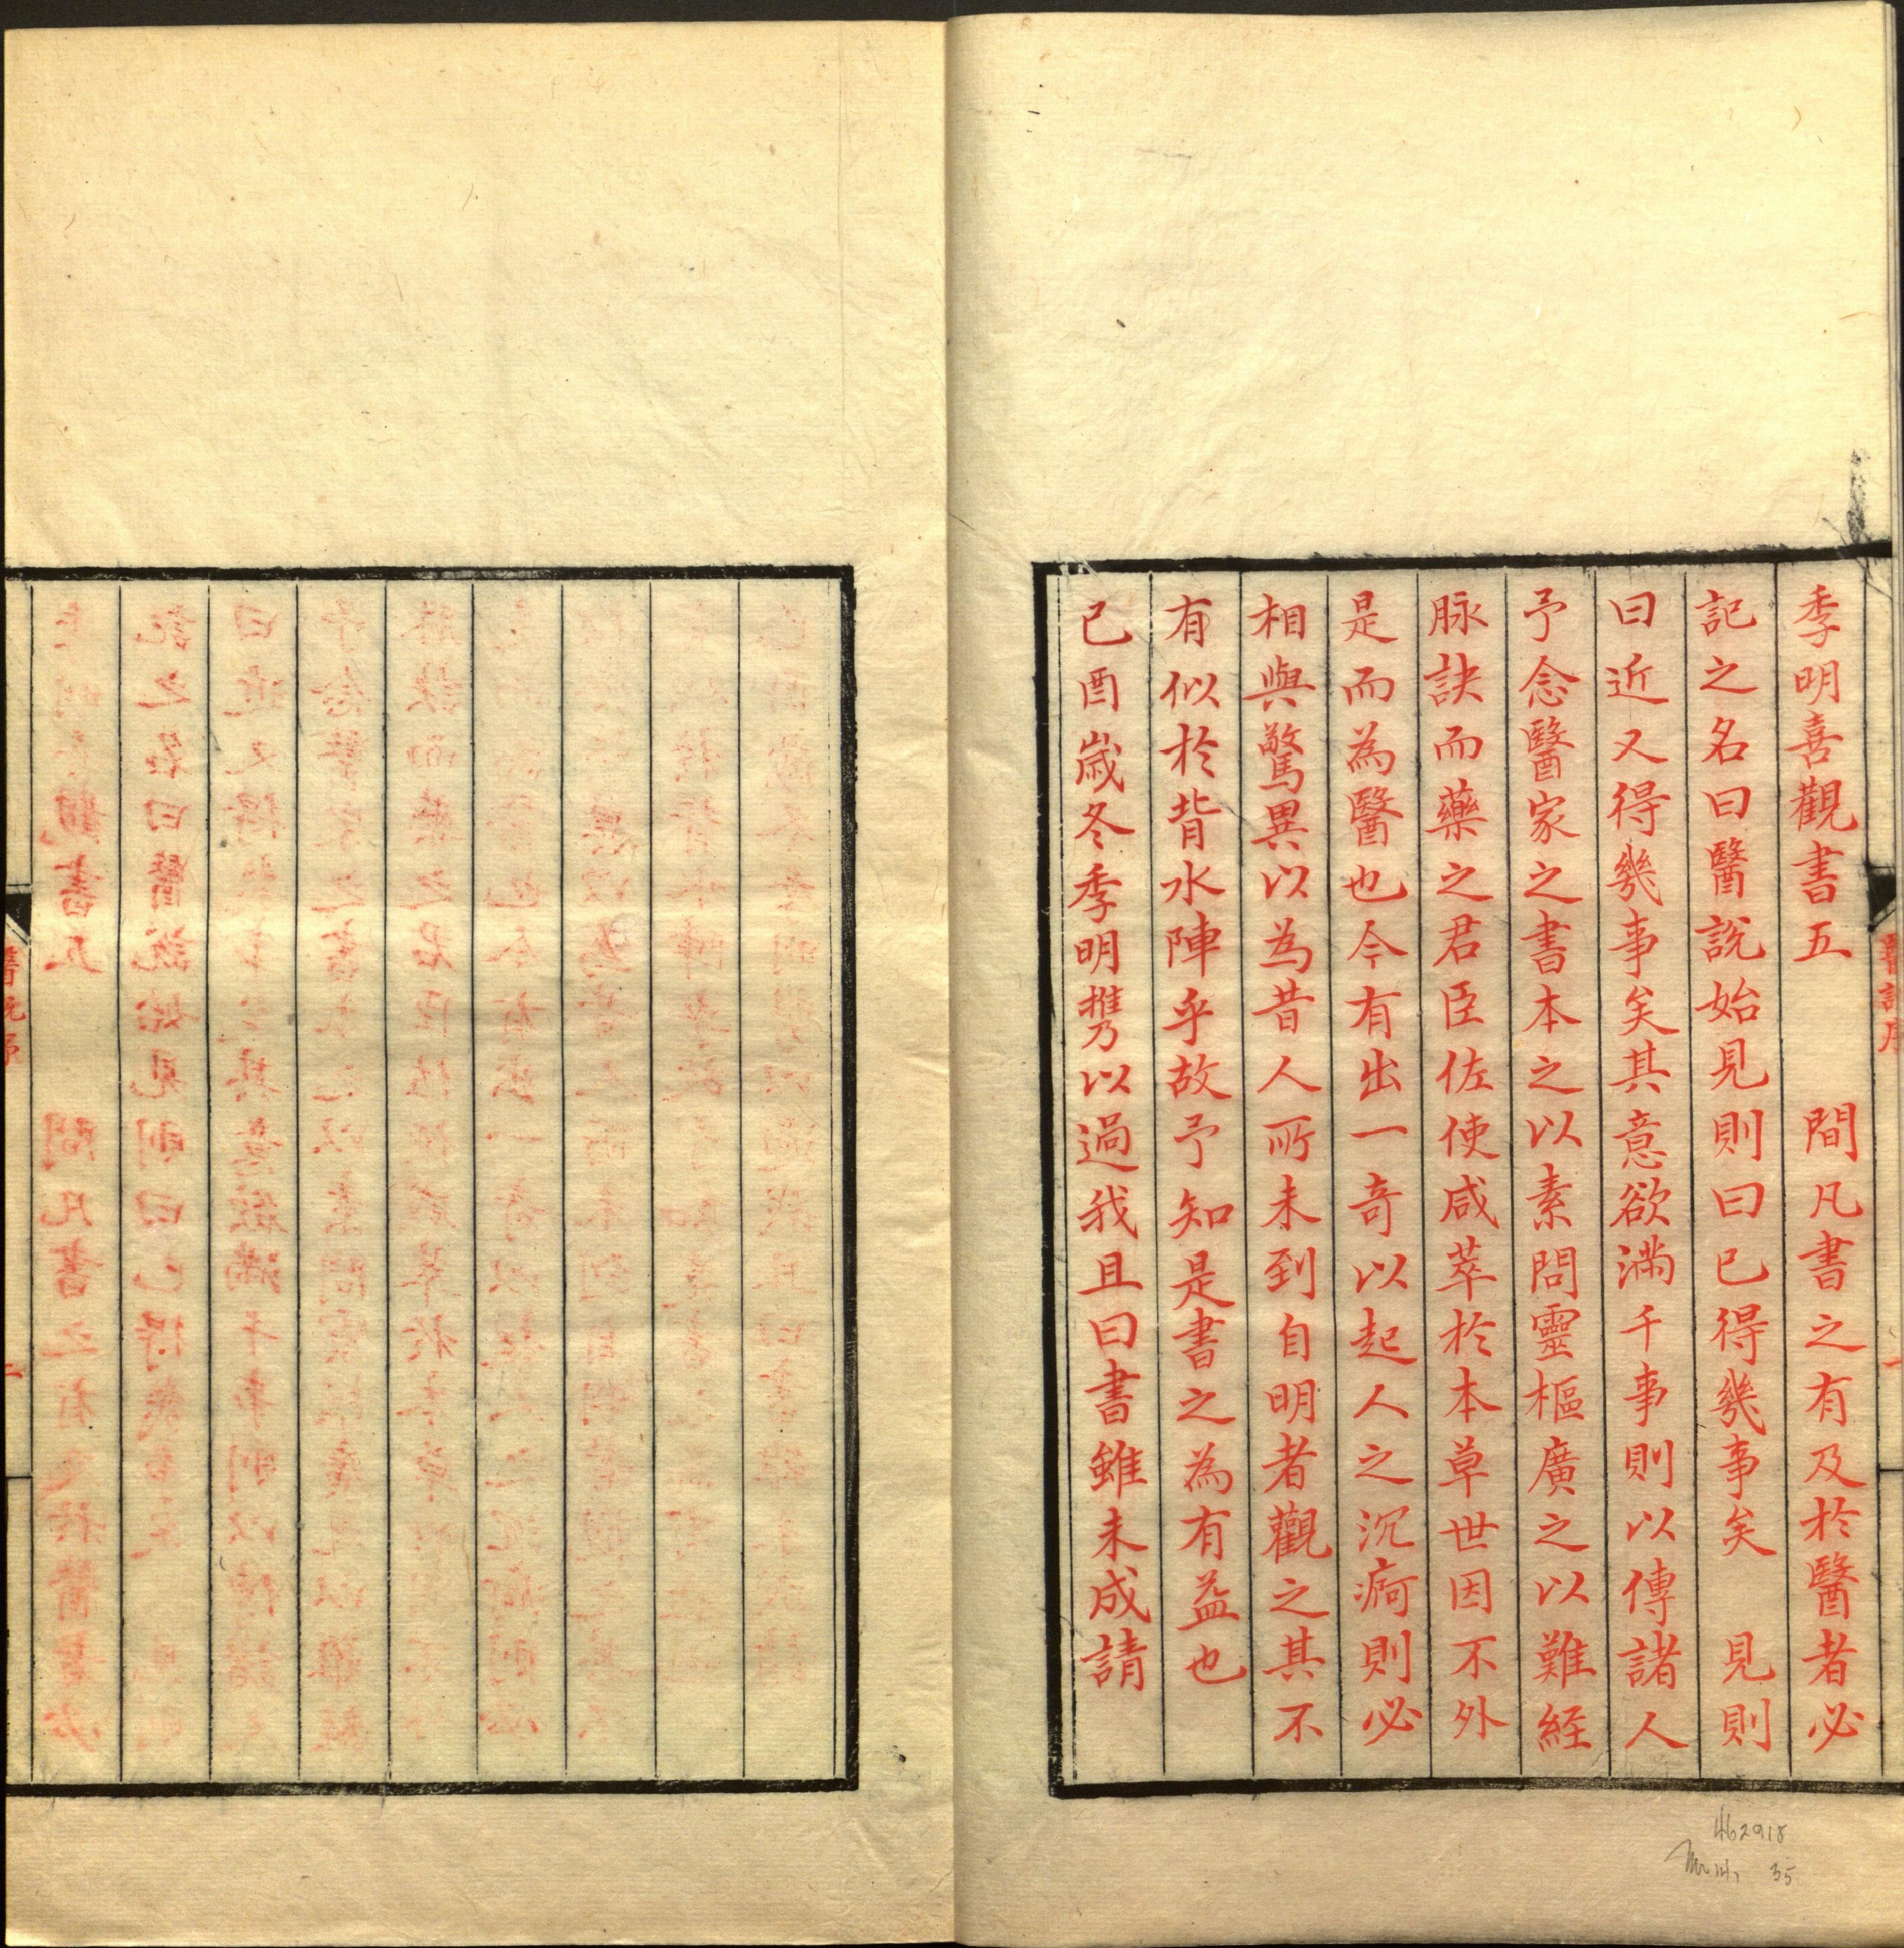 季明喜觀書五　　間凡書之有及於醫者必
記之名曰醫說始見則曰已得幾事矣　見則
曰近又得幾事矣其意欲滿千事則以傳諸人
予念醫家之書本之以素問靈樞廣之以難經
脉訣而藥之君臣佐使咸萃於本草世因不外
是而為醫也今有出一奇以起人之沉痾則必
相與驚異以為昔人所未到自明者觀之其不
有似於背水陣乎故予知是書之為有益也
己酉歲冬季明攜以過我且曰書雖未成請
醫說序
一
醫說序
二
462918
35